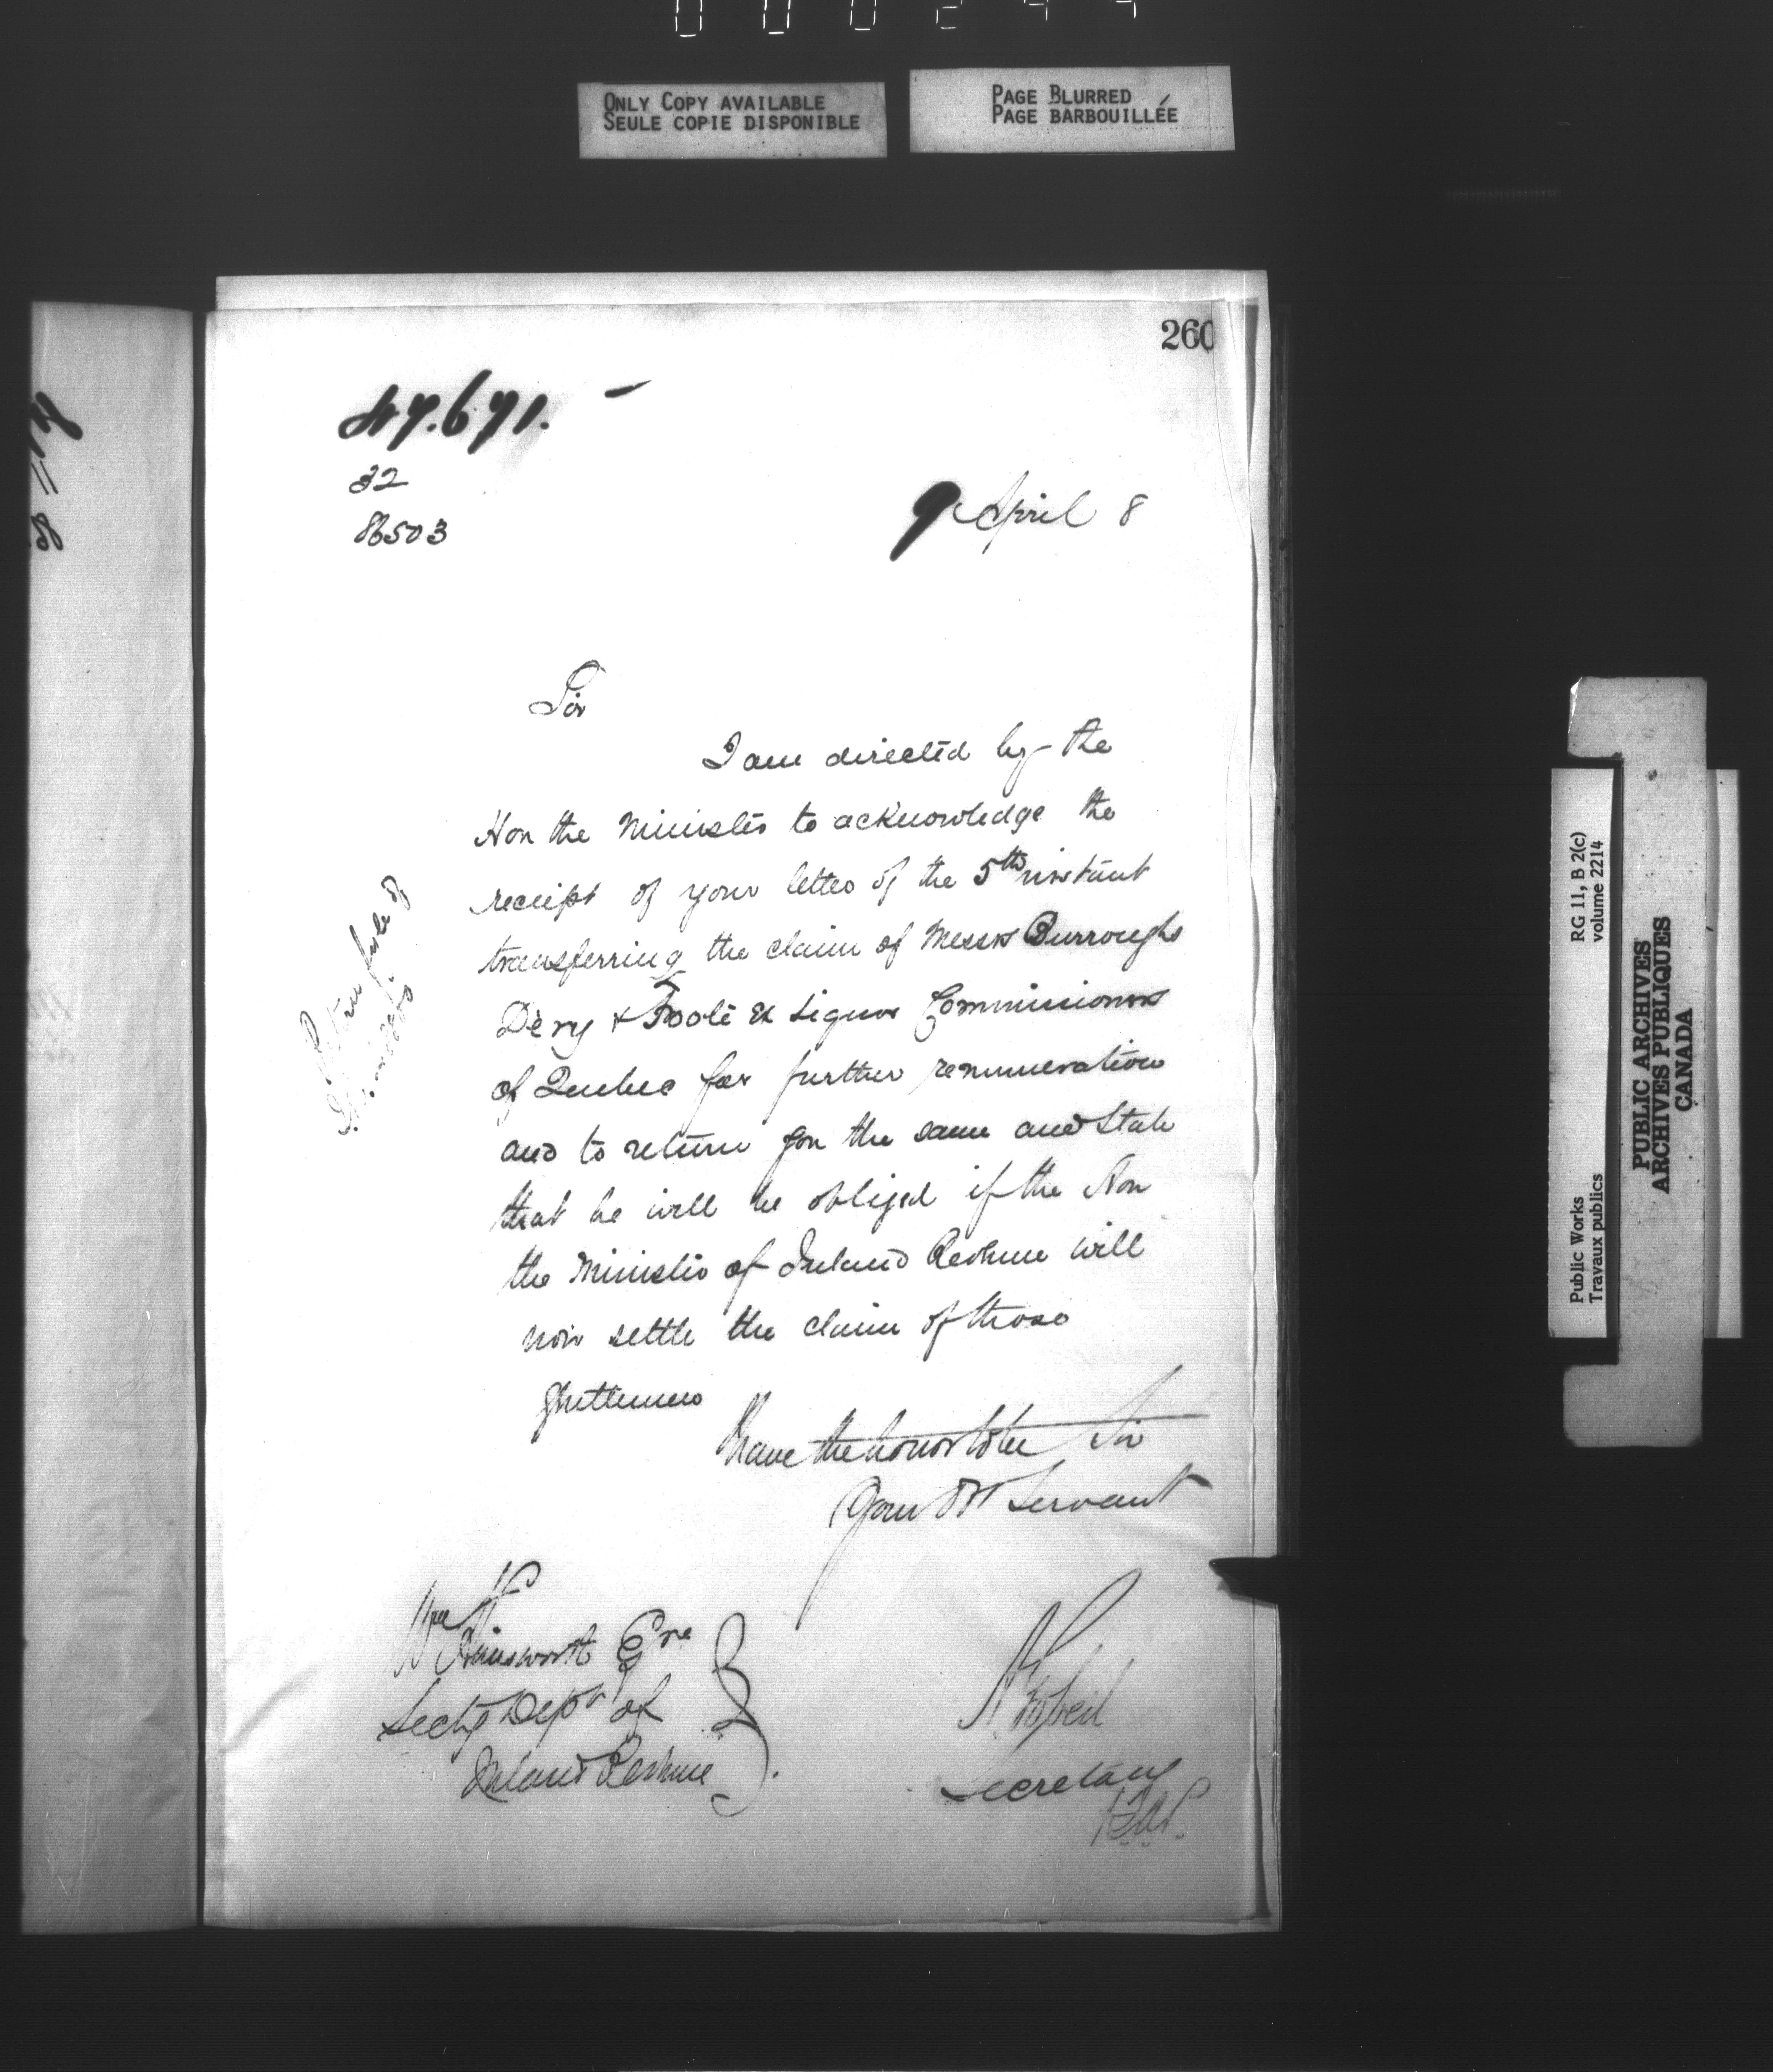 ONLY COPY AVAILABLE
SEULE COPIE DISPONIBLE
PAGE BLURRED
PAGE BARBOUILLÉE
260
47.671.
32
86503
9 April 8
Sir
I am directed by the
Hon the Minister to acknowledge the
receipt of your letter of the 5th instant
transferring the claim of Messrs Burroughs
Déry & Toole Ex Liquor Commissioners
of Quebec for further remuneration
and to return you the same and state
that he will be obliged if the Hon
the Minister of Inland Revenue will
now settle the claim of those
gentlemen
I have the honor to be Sir
Your Obt Servant
Wm Himsworth Esqre
Secty Dept of
Inland Revenue
A Gobeil
Secretary
Return file of
RG 11, B 2(c)
volume 2214
Public Works
Travaux publics
PUBLIC ARCHIVES
ARCHIVES PUBLIQUES
CANADA